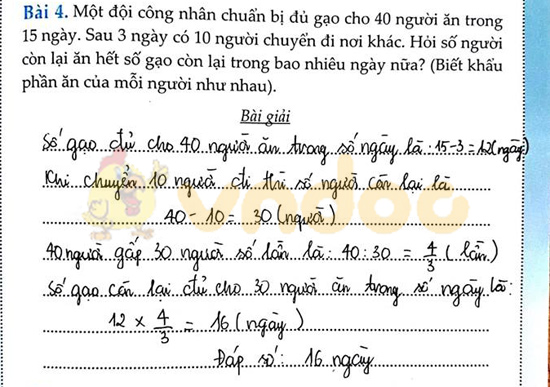 Bài 4. Một đội công nhân chuẩn bị đủ gạo cho 40 người ăn trong
15 ngày. Sau 3 ngày có 10 người chuyển đi nơi khác. Hỏi số người
còn lại ăn hết số gạo còn lại trong bao nhiêu ngày nữa? (Biết khẩu
phần ăn của mỗi người như nhau).
Bài giải
Số gạo đủ cho 40 người ăn trong số ngày là: 15-3=12(ngày)
Khi chuyển 10 người đi thì số người còn lại là
40 - 10 = 30 (người)
40 người gấp 30 người số lần là: 40:30 = 4/3 (lần)
Số gạo còn lại đủ cho 30 người ăn trong số ngày là:
12 × 4/3 = 16 (ngày)
Đáp số: 16 ngày
vndoc